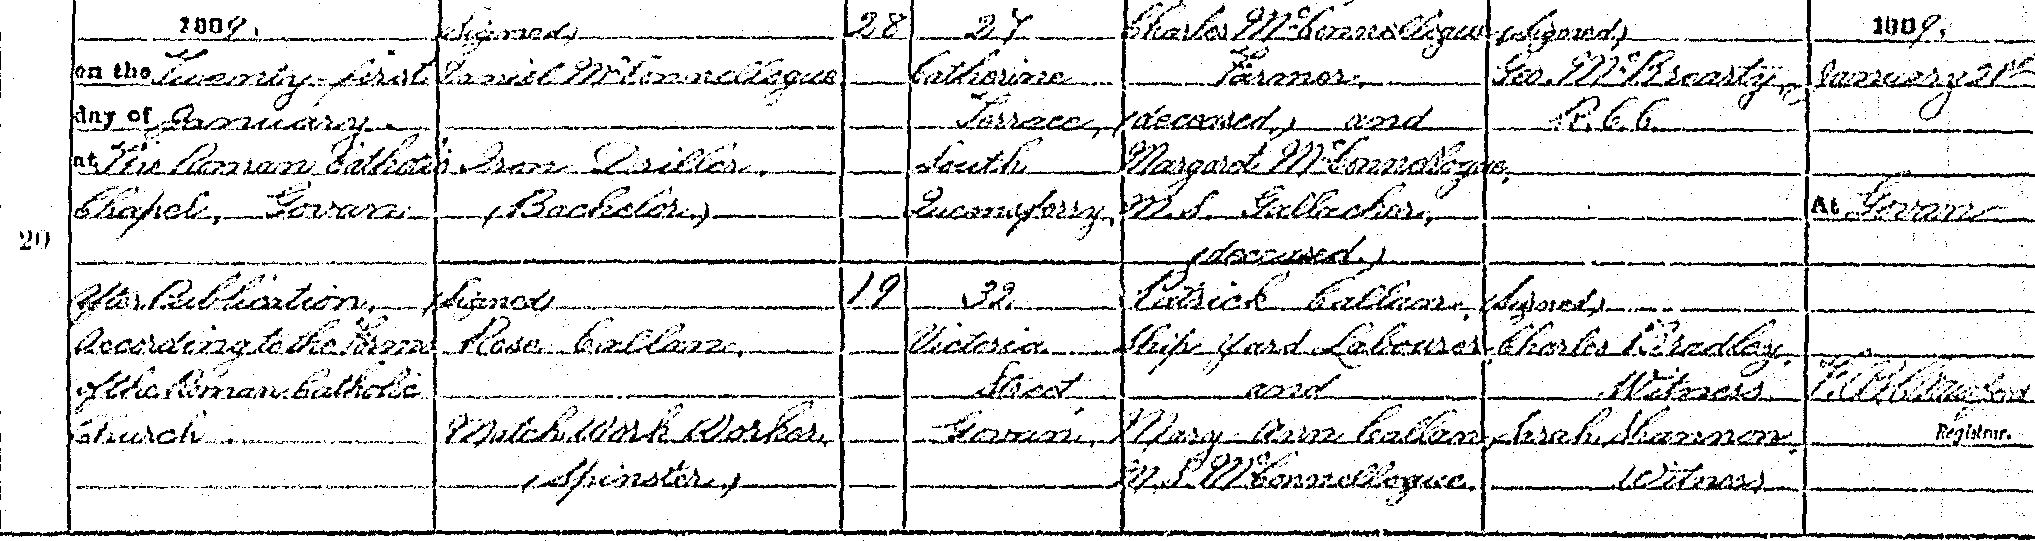 20
1889.
on the Twenty-first
day of January
at The Roman Catholic
Chapel, Govan
After Publication
According to the Forms
of the Roman Catholic
Church.
(Signed)
Daniel McConnellogue
Iron Driller.
(Bachelor)
(Signed)
Rose Callan.
Match Work Worker.
(Spinster)
28
19
27
Catherine
Terrace,
South
Queensferry.
32
Victoria
Street
Govan.
Charles McConnellogue
Farmer,
(deceased) and
Margaret McConnellogue,
M.S. Gallacher,
(deceased.)
Patrick Callan.
Ship Yard Labourer
and
Mary Ann Callan
M.S. McConnellogue.
(Signed)
Geo. McBrearty,
R.C.C.
(Signed)
Charles Bradley.
Witness
Sarah Shannon.
Witness
1889.
January 21st
At Govan
Registrar.